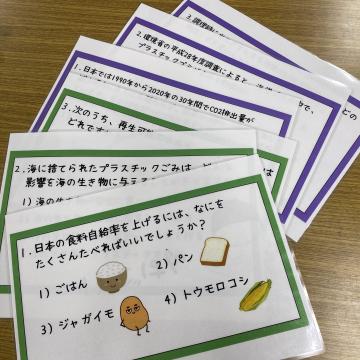 3.
2.環境省の平成28年度調査によると、
プラスチックごみ
1.日本では1990年から2020年の30年間でCO2排出量が
3.次のうち、再生可能
どれです
2.海に捨てられたプラスチックごみは、
影響を海の生き物に与える
1)海の生
1.日本の食料自給率を上げるには、なにを
たくさんたべればいいでしょうか?
1)ごはん
2)パン
3)ジャガイモ
4)トウモロコシ